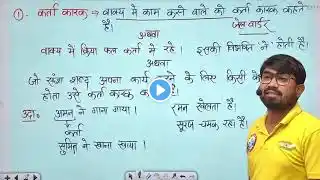 ①- कर्ता कारक ⇒ वाक्य में काम करने वाले को कर्ता कारक कहते है।
जेल वार्डर
अथवा
वाक्य में क्रिया फल कर्ता में रहे। इसकी विभक्ति ने होती है।
अथवा
जो संज्ञा शब्द अपना कार्य करने के लिए किसी के
होता उसे कर्ता कारक क है?
उदा०- अमन ने गाना गाया।
रमन खेलता है।
कर्ता
सूरज चमक रहा है।
सुमित ने खाना खाया।